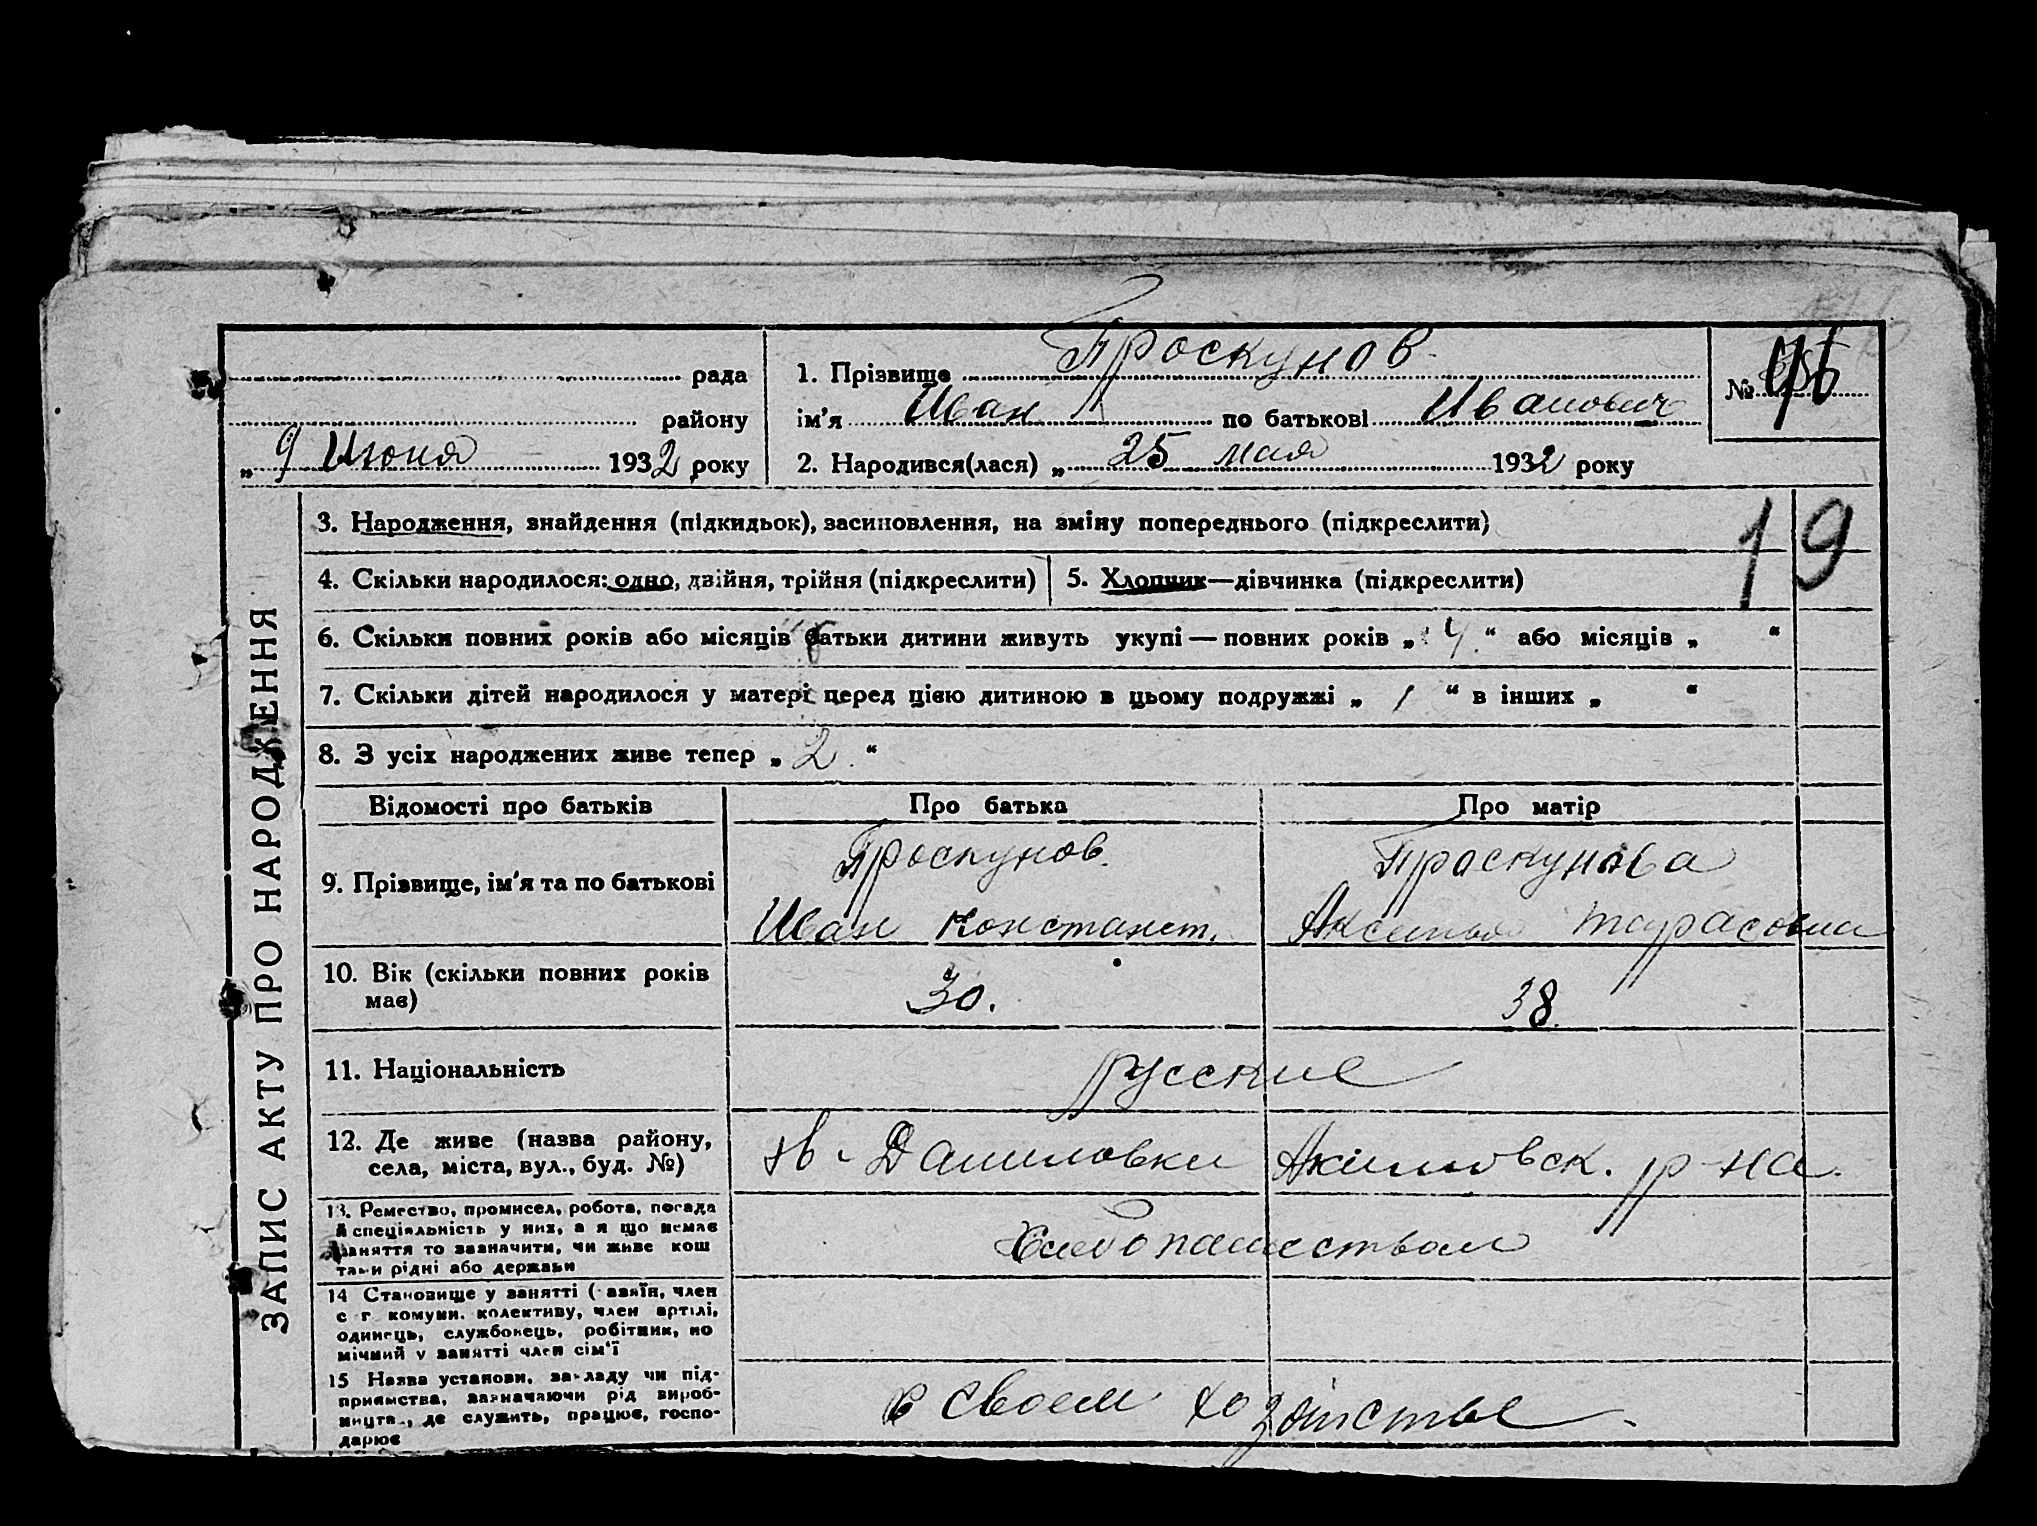 рада
району
„ 9 Июня 1932 року
1. Прізвище Проскунов
ім'я Иван по батькові Иванович
2. Народився(лася) „ 25 мая 1932 року
№
19
ЗАПИС АКТУ ПРО НАРОДЖЕННЯ
3. Народження, знайдення (підкидьок), засиновлення, на зміну попереднього (підкреслити)
4. Скільки народилося: одно, двійня, трійня (підкреслити)
5. Хлопчик—дівчинка (підкреслити)
6. Скільки повних років або місяців батьки дитини живуть укупі — повних років „ 4 “ або місяців „ “
7. Скільки дітей народилося у матері перед цією дитиною в цьому подружжі „ 1 “ в інших „ “
8. З усіх народжених живе тепер „ 2 “
Відомості про батьків
Про батька
Про матір
9. Прізвище, ім'я та по батькові
Проскунов
Иван Констант.
Проскунова
Аксинья Тарасовна
10. Вік (скільки повних років
має)
30.
38.
11. Національність
русские
12. Де живе (назва району,
села, міста, вул., буд. №)
Н-Даниловки Акимовск. р-на.
13. Ремество, промисел, робота, посада
й спеціяльність у них, а я що немає
заняття то зазначити, чи живе кош
тами рідні або держави
Хлебопашеством
14 Становище у занятті ( азяїн, член
с г комуни. колективу, член артілі,
одинець, службовець, робітник, по
мічний у занятті член сім'ї
15 Назва установи, закладу чи під-
приємства, зазначаючи рід вироб-
ництва, де служить, працює, госпо-
дарює
в своем хозяйстве